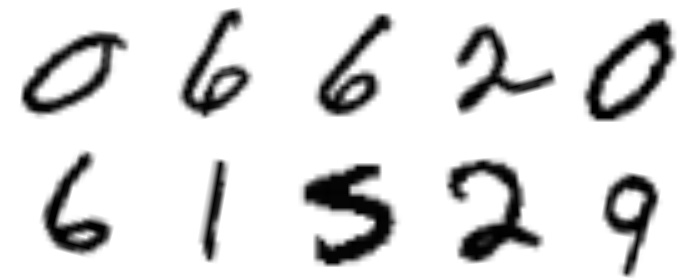 0 6 6 2 0
6 1 5 2 9